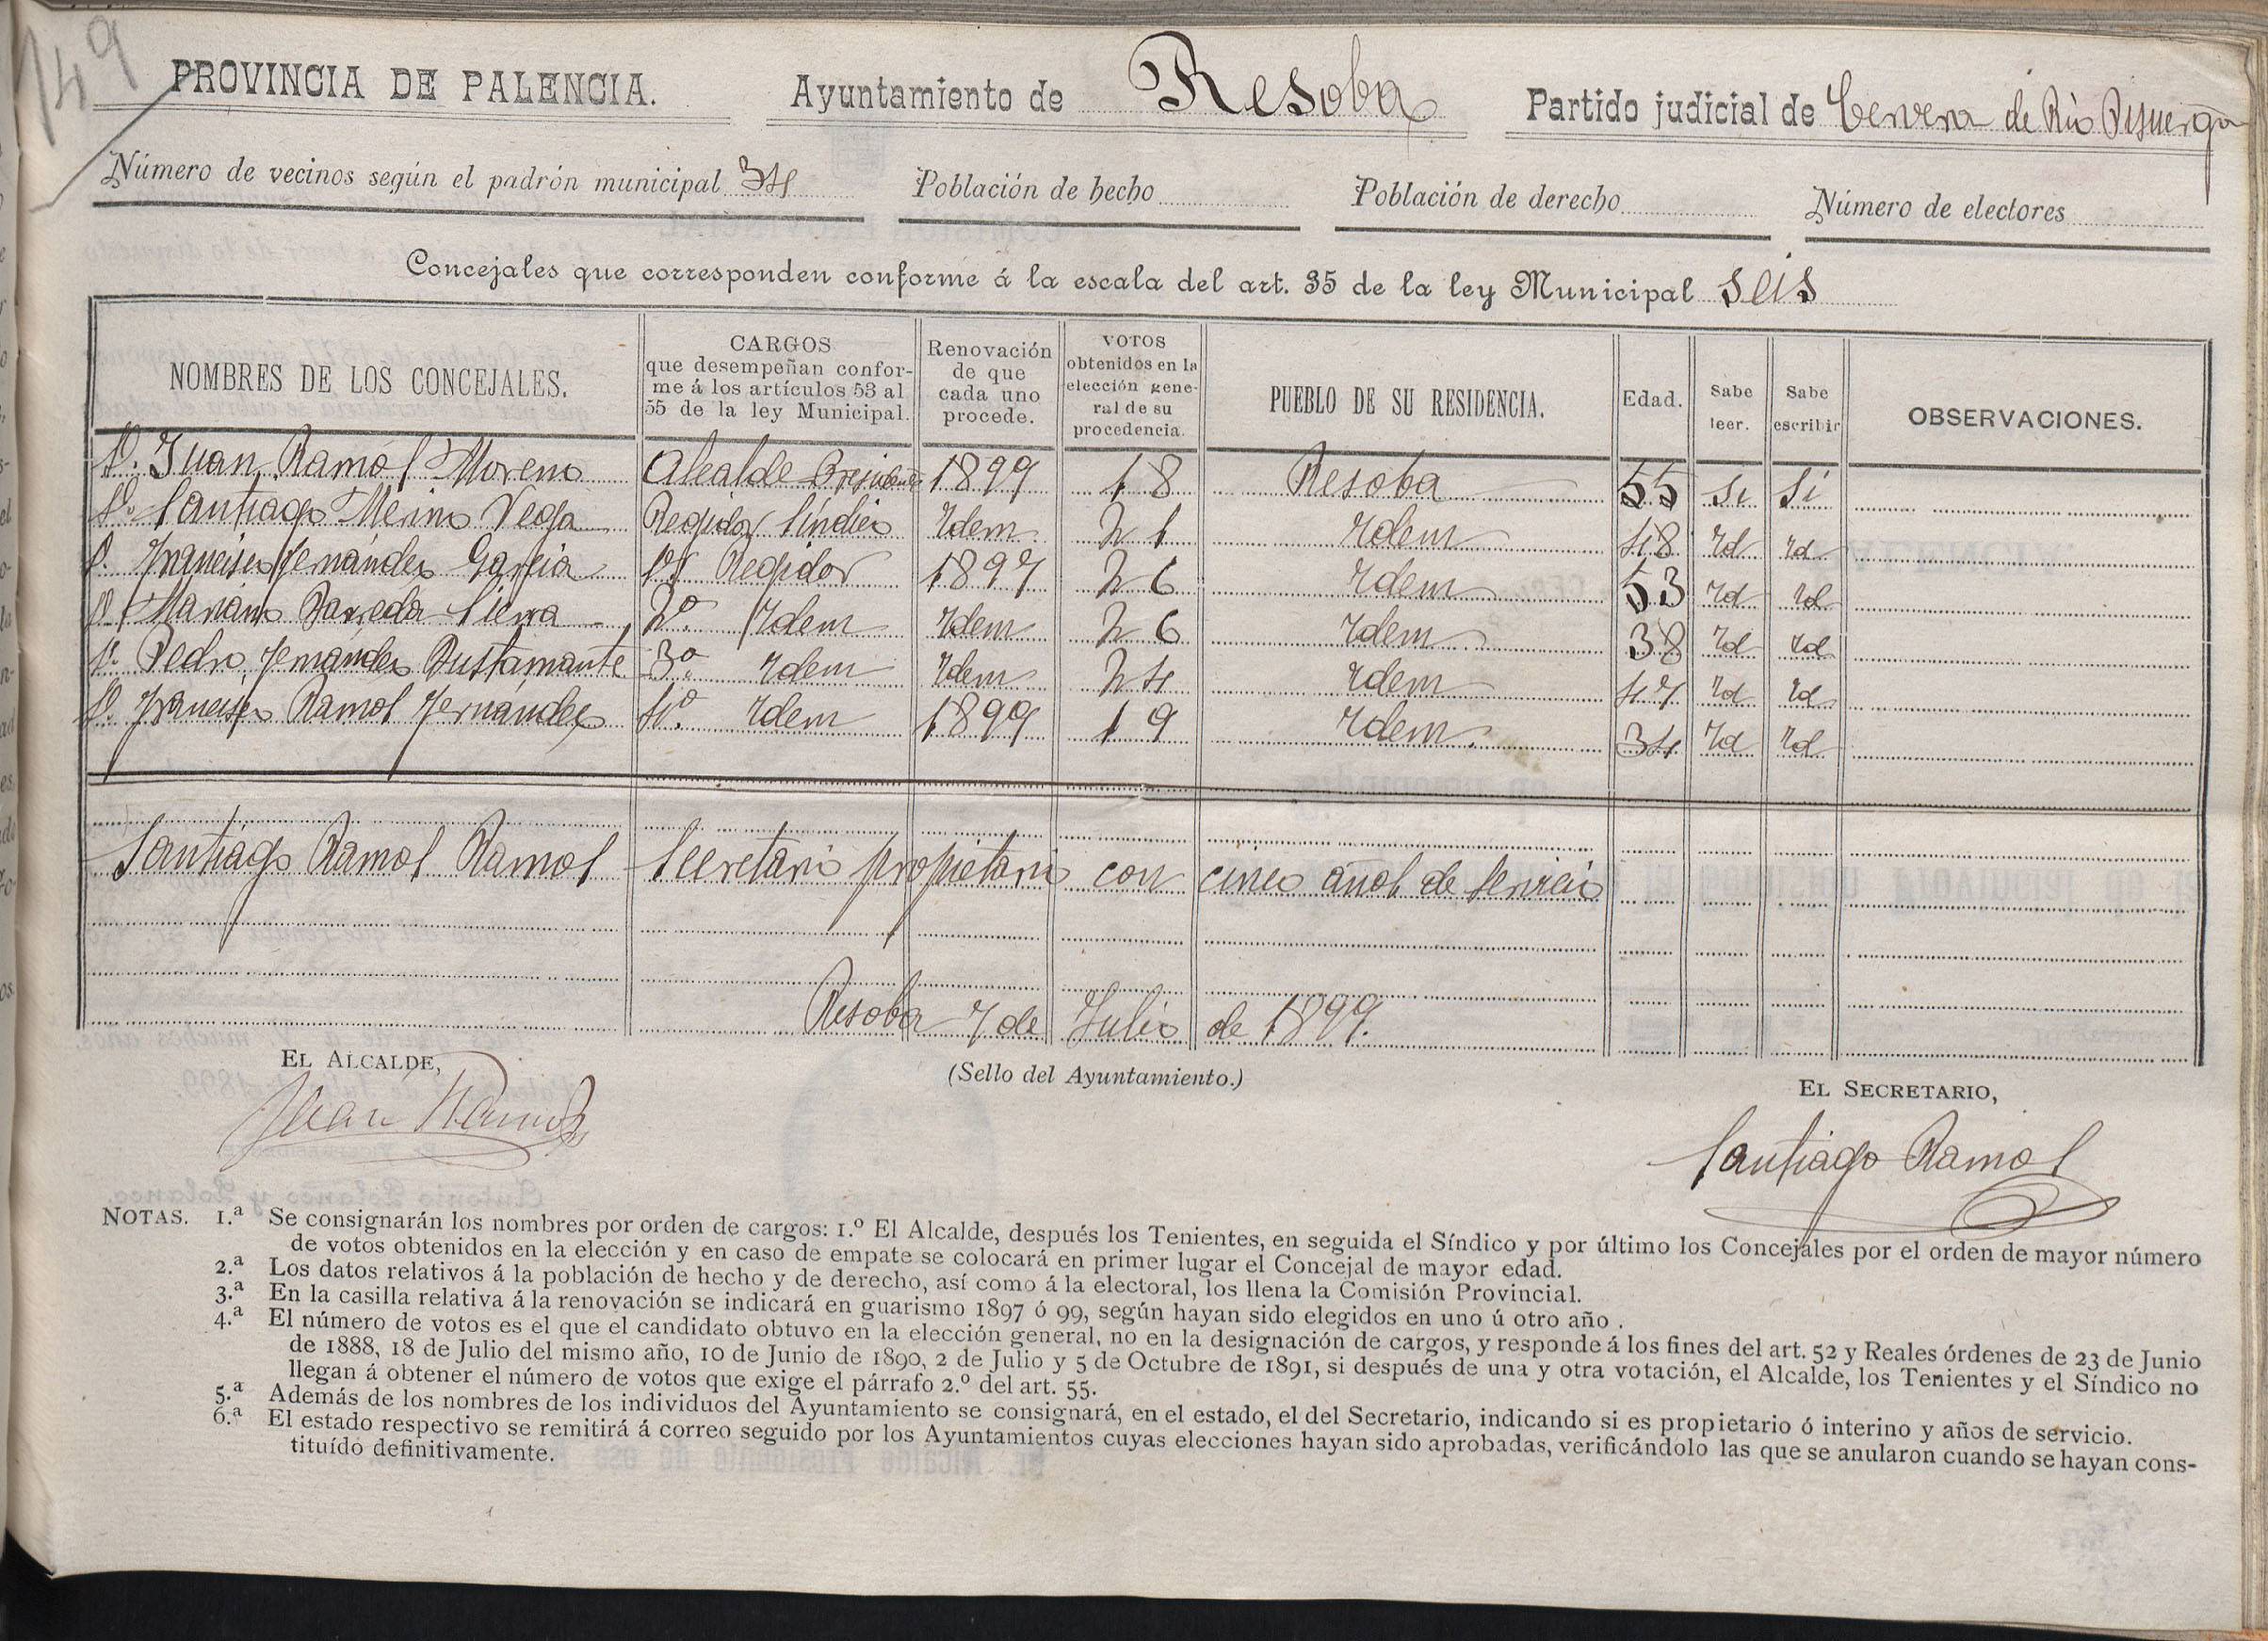 149
PROVINCIA DE PALENCIA. Ayuntamiento de Resoba Partido judicial de Cervera de Río Pisuerga
Número de vecinos según el padrón municipal 34 Población de hecho Población de derecho Número de electores
Concejales que corresponden conforme á la escala del art. 35 de la ley Municipal seis
NOMBRES DE LOS CONCEJALES. CARGOS que desempeñan conforme á los artículos 53 al 55 de la ley Municipal. Renovación de que cada uno procede. VOTOS obtenidos en la elección general de su procedencia. PUEBLO DE SU RESIDENCIA. Edad. Sabe leer. Sabe escribir OBSERVACIONES.
D. Juan Ramos Moreno Alcalde Presidente 1899 18 Resoba 55 Si Si
D. Santiago Merino Vega Regidor Síndico Idem 21 Idem 48 Id Id
D. Francisco Fernández García 1º Regidor 1897 26 Idem 53 Id Id
D. Mariano Barreda Sierra 2º Idem Idem 26 Idem 38 Id Id
D. Pedro Fernández Bustamante 3º Idem Idem 24 Idem 47 Id Id
D. Francisco Ramos Fernández 4º Idem 1899 19 Idem. 34 Id Id
Santiago Ramos Ramos Secretario propietario con cinco años de servicio
Resoba 7 de Julio de 1899.
EL ALCALDE, (Sello del Ayuntamiento.) EL SECRETARIO,
Juan Ramos Santiago Ramos
NOTAS. 1.ª Se consignarán los nombres por orden de cargos: 1.º El Alcalde, después los Tenientes, en seguida el Síndico y por último los Concejales por el orden de mayor número
de votos obtenidos en la elección y en caso de empate se colocará en primer lugar el Concejal de mayor edad.
2.ª Los datos relativos á la población de hecho y de derecho, así como á la electoral, los llena la Comisión Provincial.
3.ª En la casilla relativa á la renovación se indicará en guarismo 1897 ó 99, según hayan sido elegidos en uno ú otro año.
4.ª El número de votos es el que el candidato obtuvo en la elección general, no en la designación de cargos, y responde á los fines del art. 52 y Reales órdenes de 23 de Junio
de 1888, 18 de Julio del mismo año, 10 de Junio de 1890, 2 de Julio y 5 de Octubre de 1891, si después de una y otra votación, el Alcalde, los Tenientes y el Síndico no
llegan á obtener el número de votos que exige el párrafo 2.º del art. 55.
5.ª Además de los nombres de los individuos del Ayuntamiento se consignará, en el estado, el del Secretario, indicando si es propietario ó interino y años de servicio.
6.ª El estado respectivo se remitirá á correo seguido por los Ayuntamientos cuyas elecciones hayan sido aprobadas, verificándolo las que se anularon cuando se hayan cons-
tituído definitivamente.